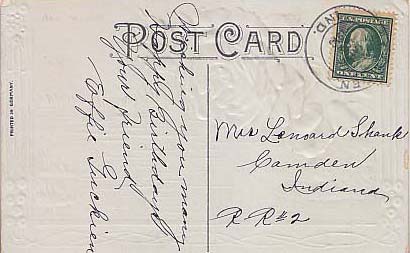 POST CARD
PRINTED IN GERMANY.
Wishing you many
Happy Birthdays
Your friend
Effie
U.S. POSTAGE
ONE CENT
IND.
Mrs Lenoard Shank
Camden
Indiana
R R #2